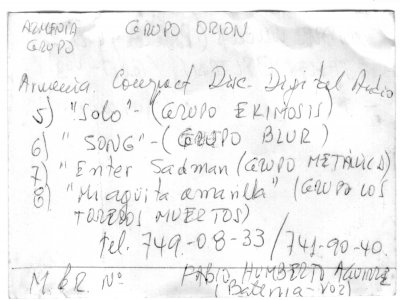 ARMENIA GRUPO ORION
GRUPO
Armenia. Compact Disc. Digital Audio
5) "Solo" - (GRUPO EKIMOSIS)
6) "SONG" - (GRUPO BLUR)
7) "Enter Sadman (GRUPO METALICA)
8) "Mi aguita amarilla" (GRUPO LOS
TOREROS MUERTOS)
tel. 749-08-33 / 741-90-40.
M.&R. Nº FABIO HUMBERTO AGUIRRE
(Bateria - Voz)